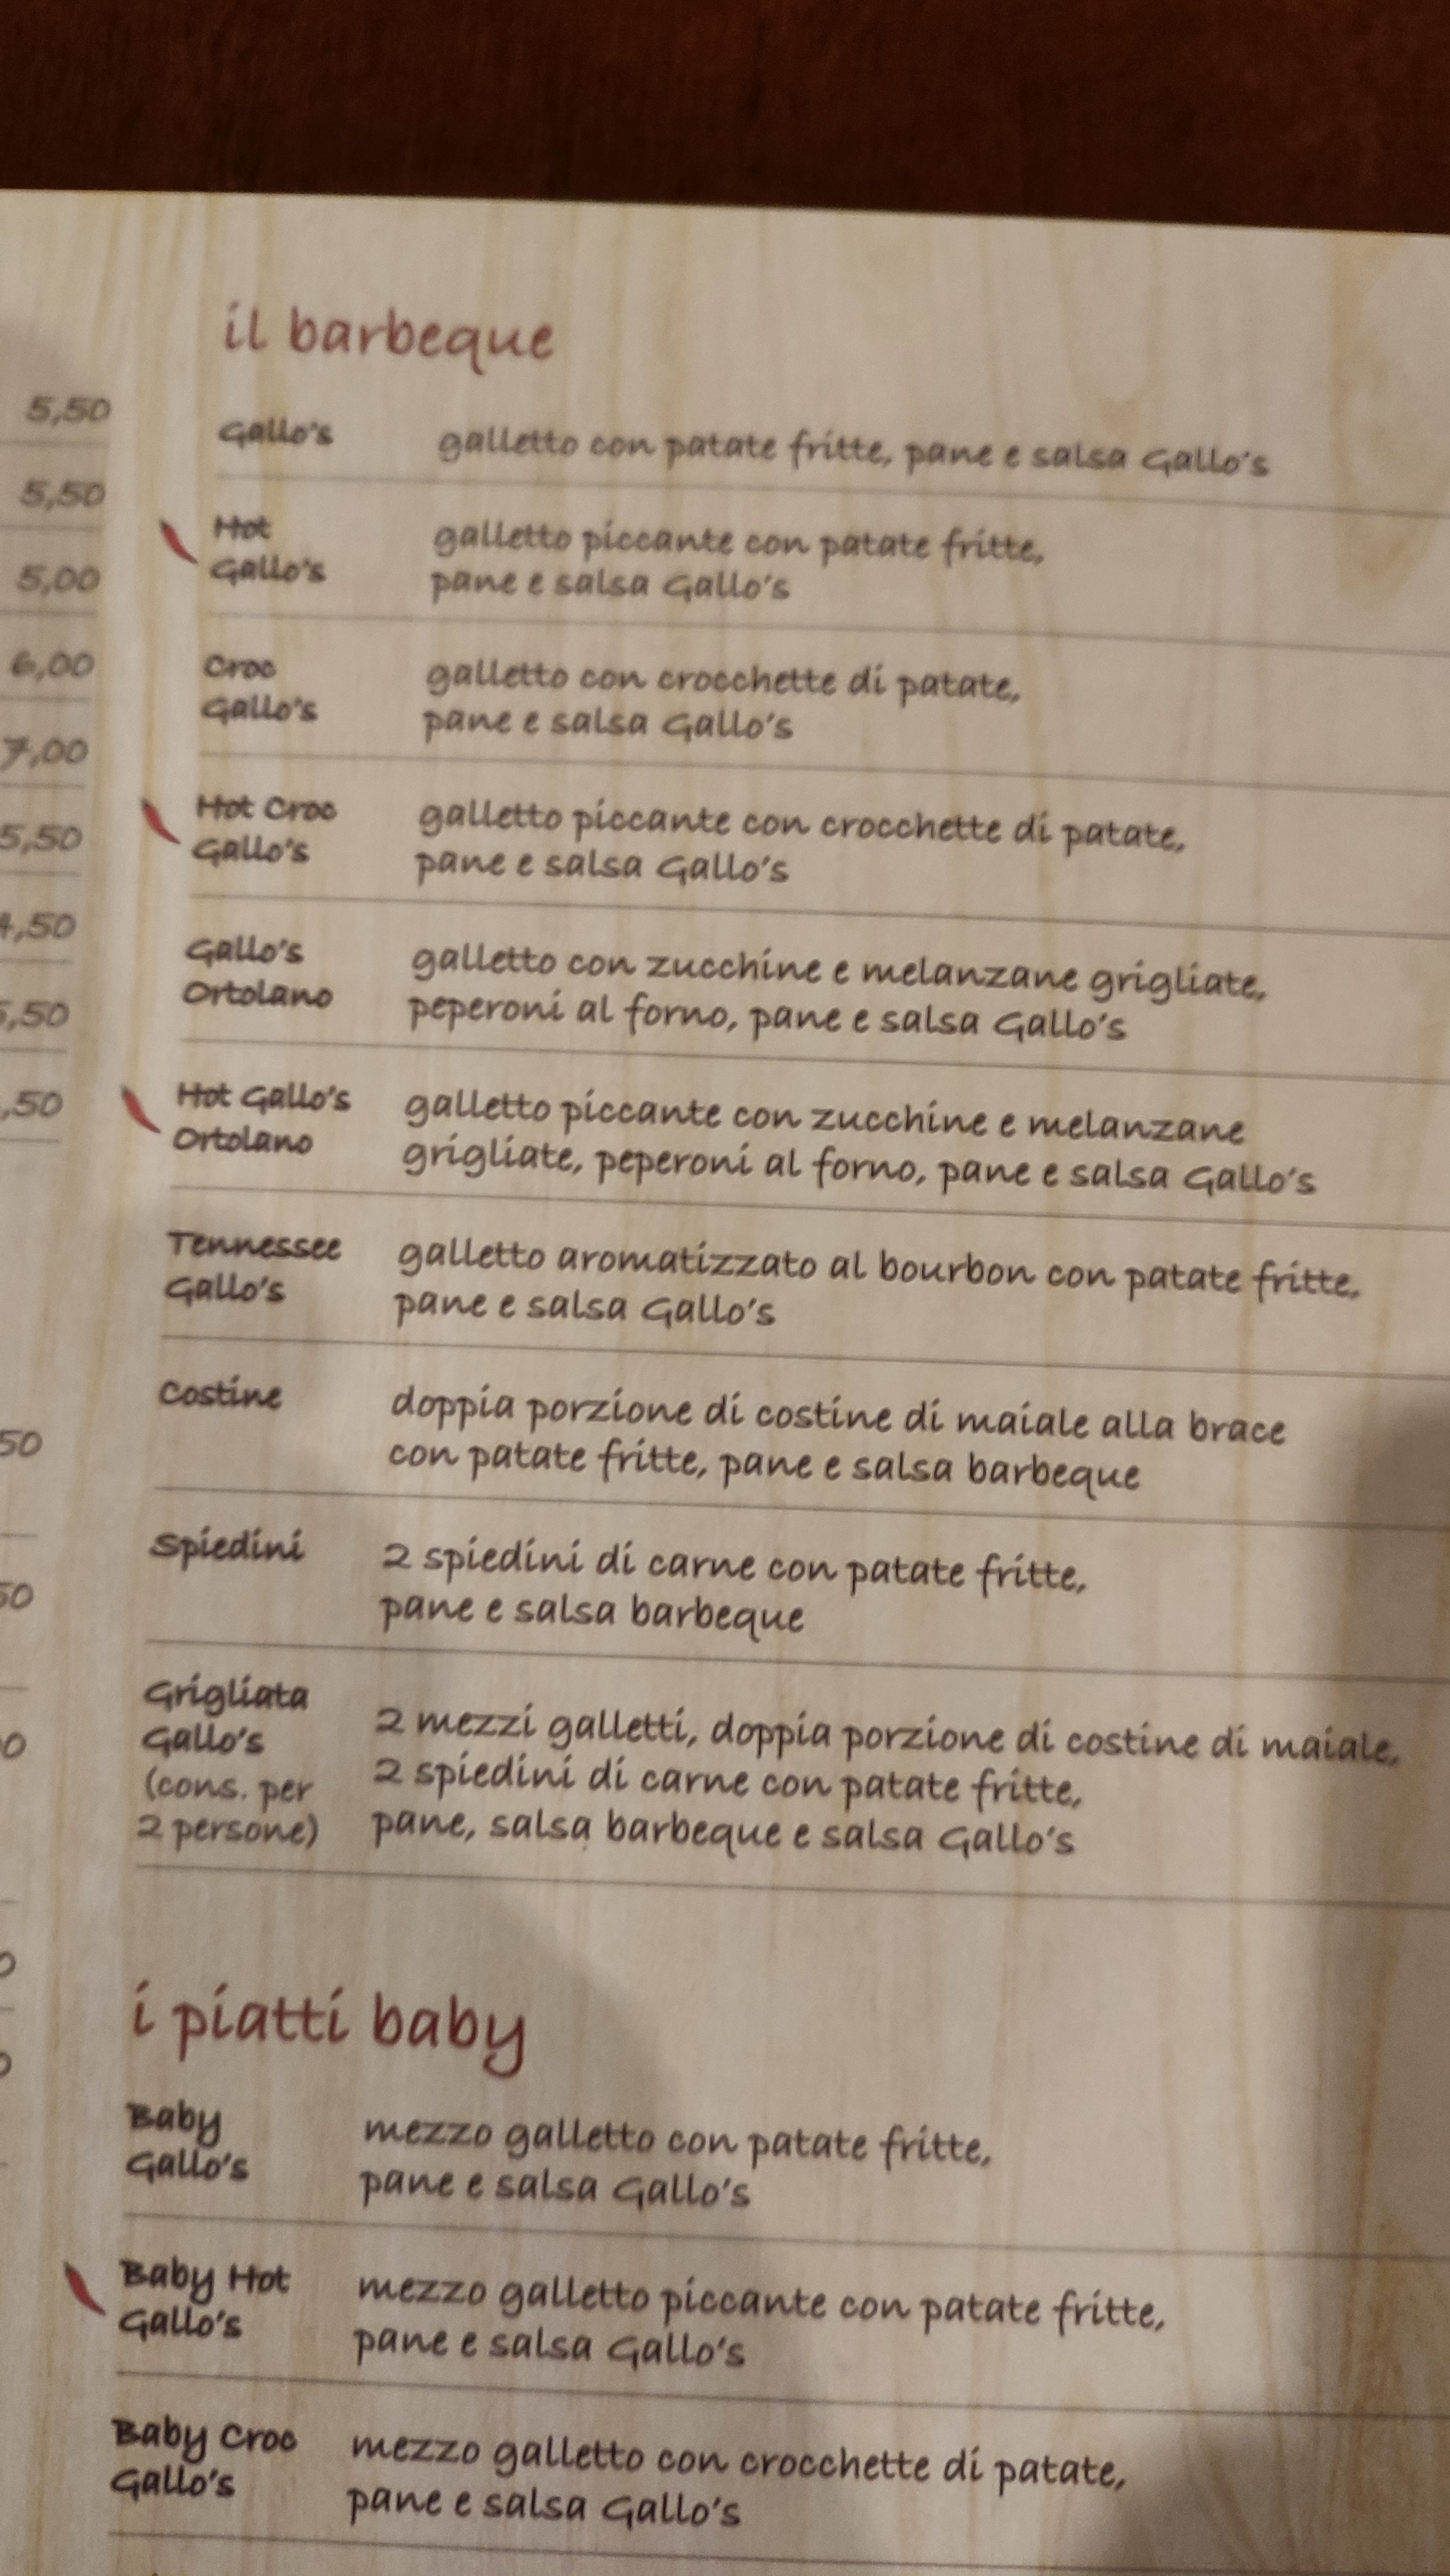 il barbeque
5,50
5,50
5,00
6,00
7,00
5,50
,50
,50
,50
50
50
Gallo's
galletto con patate fritte, pane e salsa Gallo's
Hot
Gallo's
galletto piccante con patate fritte,
pane e salsa Gallo's
Croc
Gallo's
galletto con crocchette di patate,
pane e salsa Gallo's
Hot Croc
Gallo's
galletto piccante con crocchette di patate,
pane e salsa Gallo's
Gallo's
Ortolano
galletto con zucchine e melanzane grigliate,
peperoni al forno, pane e salsa Gallo's
Hot Gallo's
Ortolano
galletto piccante con zucchine e melanzane
grigliate, peperoni al forno, pane e salsa Gallo's
Tennessee
Gallo's
galletto aromatizzato al bourbon con patate fritte,
pane e salsa Gallo's
Costine
doppia porzione di costine di maiale alla brace
con patate fritte, pane e salsa barbeque
Spiedini
2 spiedini di carne con patate fritte,
pane e salsa barbeque
Grigliata
Gallo's
(cons. per
2 persone)
2 mezzi galletti, doppia porzione di costine di maiale,
2 spiedini di carne con patate fritte,
pane, salsa barbeque e salsa Gallo's
i piatti baby
Baby
Gallo's
mezzo galletto con patate fritte,
pane e salsa Gallo's
Baby Hot
Gallo's
mezzo galletto piccante con patate fritte,
pane e salsa Gallo's
Baby Croc
Gallo's
mezzo galletto con crocchette di patate,
pane e salsa Gallo's